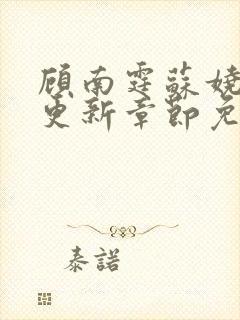 顾南霆苏娆
更新章节免
泰諾